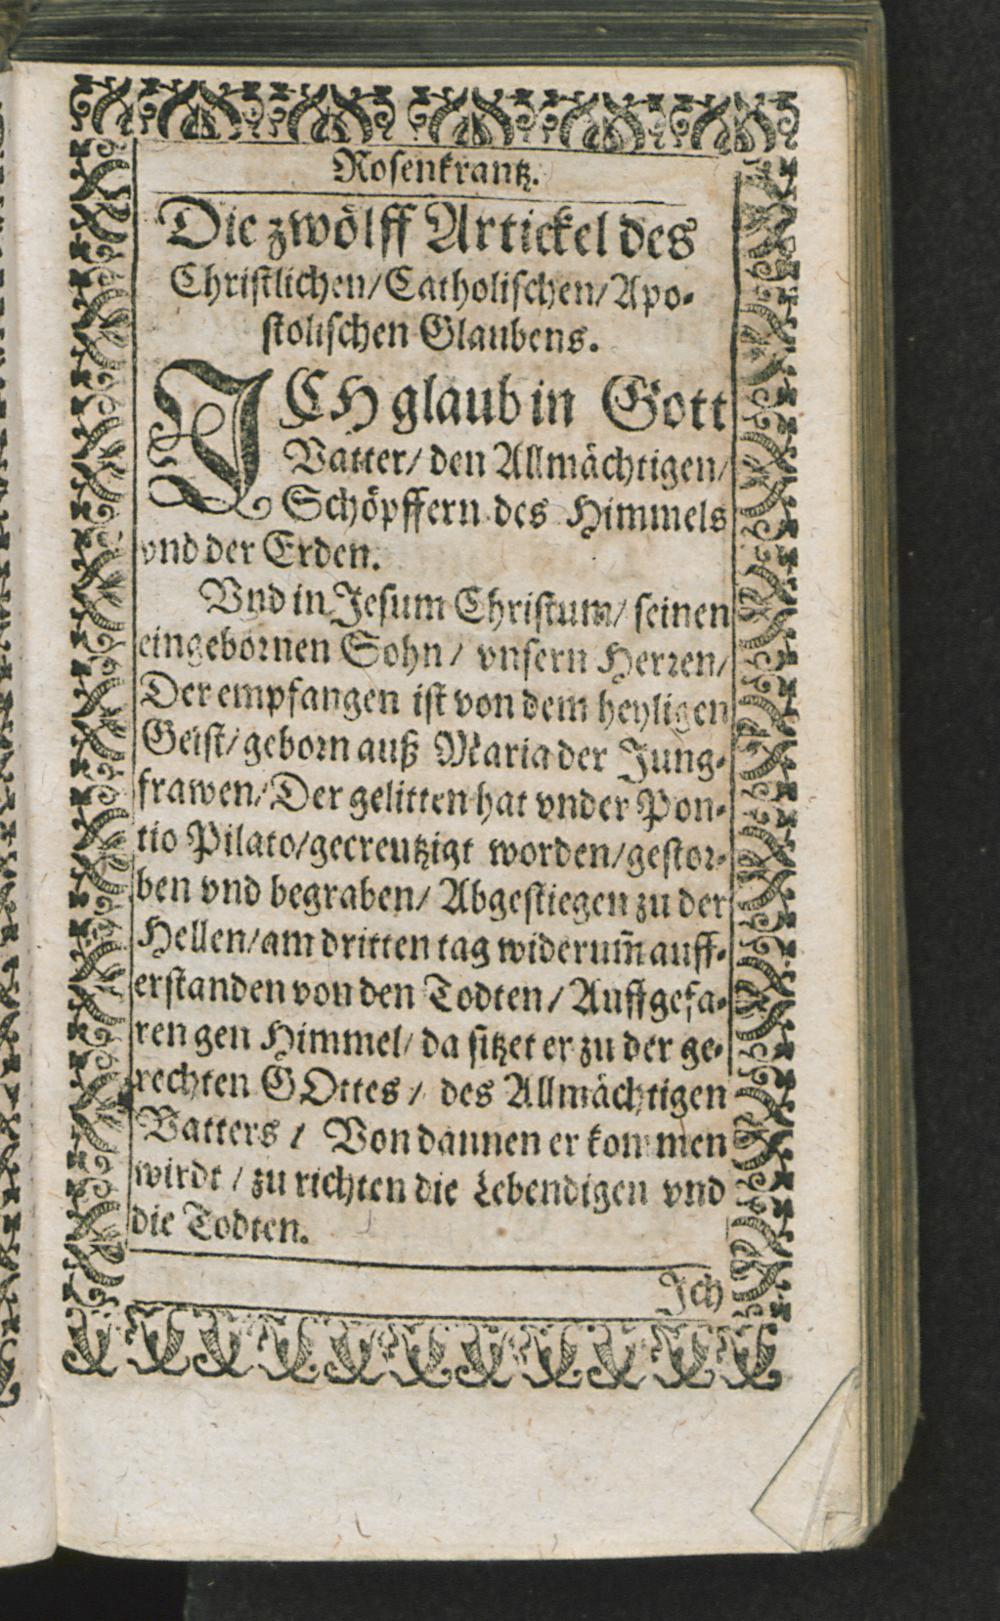 Rosenkrantz.
Die zwölff Artickel des
Christlichen/Catholischen/Apo-
stolischen Glaubens.
JCH glaub in Gott
Vatter/ den Allmächtigen/
Schöpffern des Himmels
vnd der Erden.
Vnd in Jesum Christum/ seinen
eingebornen Sohn/ vnsern Herren/
Der empfangen ist von dem heyligen
Geist/ geborn auß Maria der Jung-
frawen/ Der gelitten hat vnder Pon-
tio Pilato/gecreutzigt worden/gestor-
ben vnd begraben/ Abgestiegen zu der
Hellen/am dritten tag widerum̃ auff-
erstanden von den Todten/ Auffgefa-
ren gen Himmel/ da sitzet er zu der ge-
rechten GOttes/ des Allmächtigen
Vatters/ Von dannen er kommen
wirdt/ zu richten die Lebendigen vnd
die Todten.
Jch